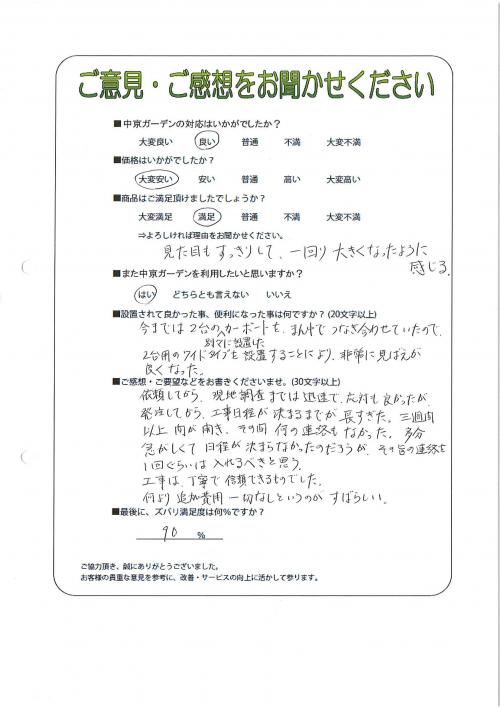 ご意見・ご感想をお聞かせください
■中京ガーデンの対応はいかがでしたか？
大変良い 良い 普通 不満 大変不満
■価格はいかがでしたか？
大変安い 安い 普通 高い 大変高い
■商品はご満足頂けましたでしょうか？
大変満足 満足 普通 不満 大変不満
⇒よろしければ理由をお聞かせください。
見た目もすっきりして、一回り大きくなったように
感じる。
■また中京ガーデンを利用したいと思いますか？
はい どちらとも言えない いいえ
■設置されて良かった事、便利になった事は何ですか？(20文字以上)
今までは2台のカーポートを、まん中でつなぎ合わせていたので、
別々に設置した
2台用のワイドタイプを設置することにより、非常に見ばえが
良くなった。
■ご感想・ご要望などをお書きくださいませ。(30文字以上)
依頼してから、現地調査までは迅速で、応対も良かったが、
発注してから、工事日程が決まるまでが長すぎた。三週間
以上間が開き、その間何の連絡もなかった。多分
忙がしくて日程が決まらなかったのだろうが、その旨の連絡を
1回ぐらいは入れるべきと思う。
工事は、丁寧で信頼できるものでした。
何より追加費用一切なしというのがすばらしい。
■最後に、ズバリ満足度は何％ですか？
90 %
ご協力頂き、誠にありがとうございました。
お客様の貴重な意見を参考に、改善・サービスの向上に活かして参ります。